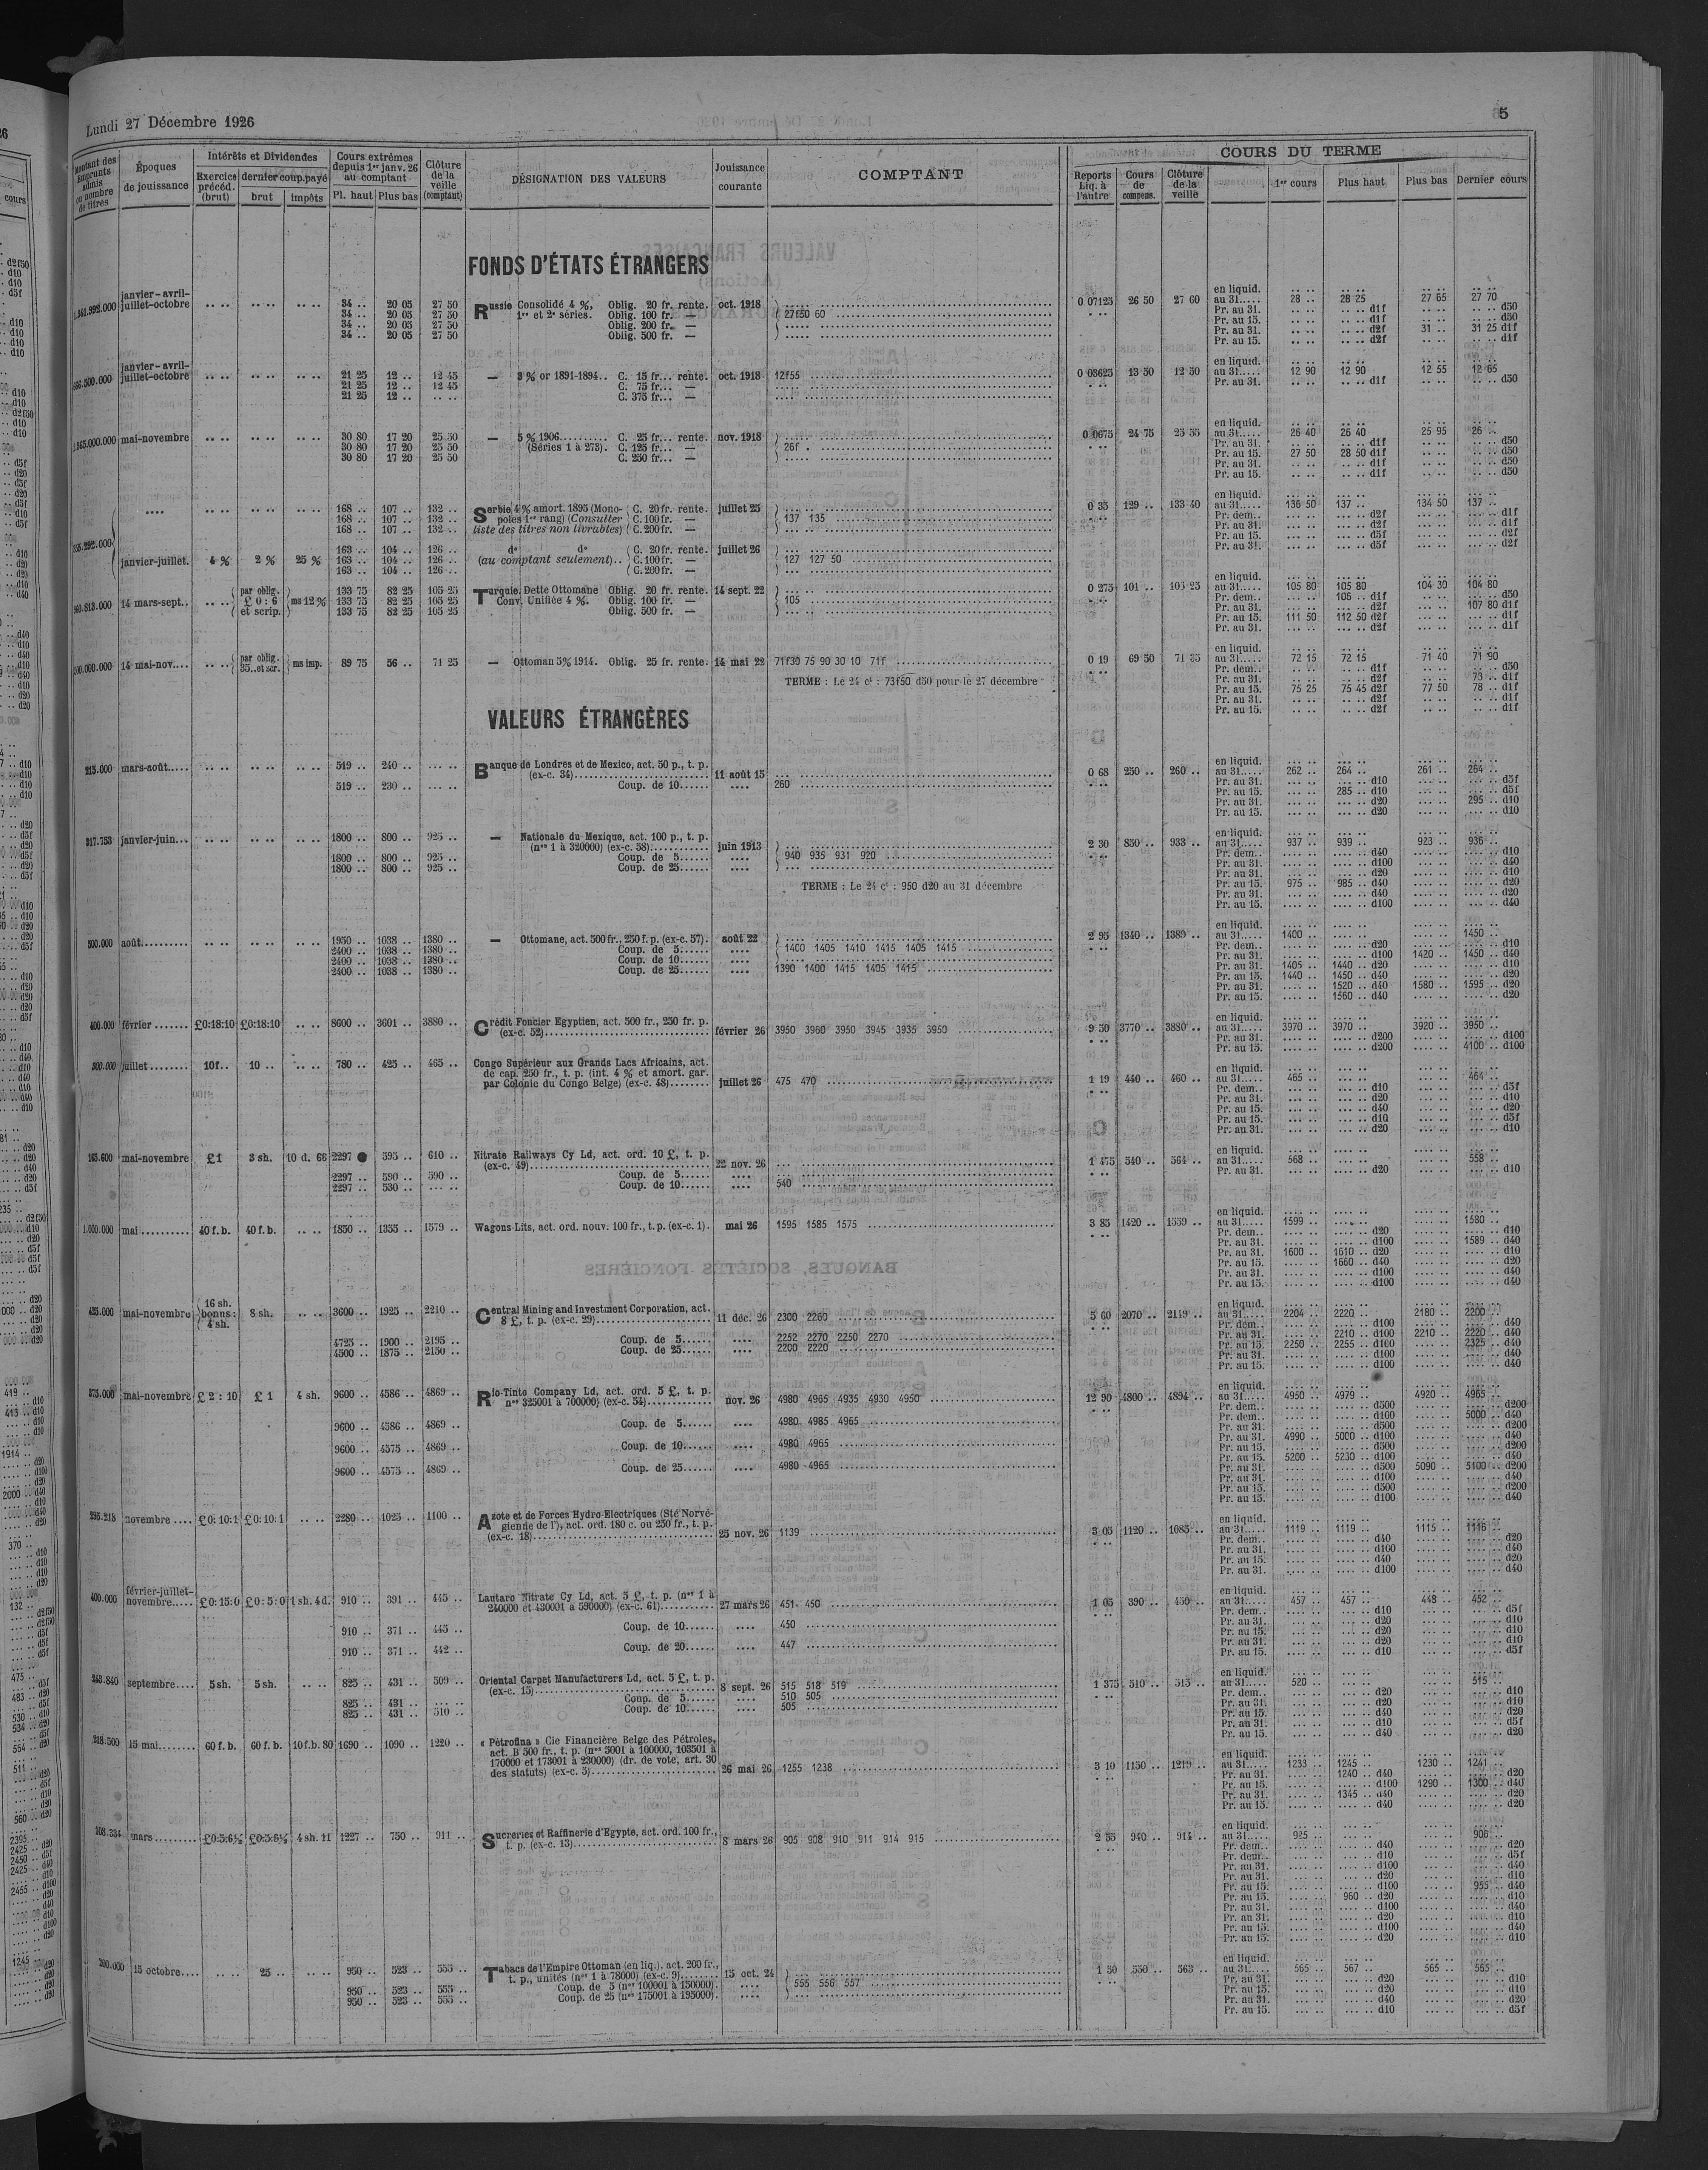 Lundi 27 Décembre 1926
5
Montant des Emprunts admis ou nombre de titres
Époques de jouissance
Intérêts et Dividendes
Exercice précéd. (brut)
dernier coup. payé
brut
impôts
Cours extrêmes depuis 1er janv. 26 au comptant
Pl. haut
Plus bas
Clôture de la veille (comptant)
DÉSIGNATION DES VALEURS
Jouissance courante
COMPTANT
COURS DU TERME
Reports Liq. à l'autre
Cours de compens.
Clôture de la veille
1er cours
Plus haut
Plus bas
Dernier cours
FONDS D'ÉTATS ÉTRANGERS
janvier-avril-
juillet-octobre 34 .. 20 05 27 50 Russie Consolidé 4 %, Oblig. 20 fr. rente. oct. 1918
34 .. 20 05 27 50 1re et 2e séries. Oblig. 100 fr. — 27f50 60
34 .. 20 05 27 50 Oblig. 200 fr. —
34 .. 20 05 27 50 Oblig. 500 fr. —
0 07125 26 50 27 60
en liquid.
au 31..... 28 .. 28 25 27 65 27 70
Pr. au 31. d1f d50
Pr. au 15. d1f d50
Pr. au 31. d2f 31 .. 31 25 d1f
Pr. au 15. d2f d1f
janvier-avril-
juillet-octobre 21 25 12 .. 12 45 — 3 % or 1891-1894.. C. 15 fr... rente. oct. 1918 12f55
21 25 12 .. 12 45 C. 75 fr... —
21 25 12 .. C. 375 fr... —
0 03625 13 50 12 50
en liquid.
au 31..... 12 90 12 90 12 55 12 65
Pr. au 31. d1f d50
mai-novembre 30 80 17 20 25 50 — 5 % 1906.......... C. 25 fr... rente. nov. 1918
30 80 17 20 25 50 (Séries 1 à 273). C. 125 fr... — 26f
30 80 17 20 25 50 C. 250 fr... —
0 0675 24 75 25 55
en liquid.
au 31..... 26 40 26 40 25 95 26 ..
Pr. au 31. d1f d50
Pr. au 15. 27 50 28 50 d1f d50
Pr. au 31. d1f d50
Pr. au 15. d1f d50
168 .. 107 .. 132 .. Serbie 4 % amort. 1895 (Mono- C. 20 fr. rente. juillet 25
168 .. 107 .. 132 .. poles 1er rang) (Consulter C. 100 fr. — 137 135
168 .. 107 .. 132 .. liste des titres non livrables) C. 200 fr. —
0 35 129 .. 133 40
en liquid.
au 31..... 136 50 137 .. 134 50 137 ..
Pr. dem.. d2f d1f
Pr. au 31. d2f d1f
Pr. au 15. d5f d2f
Pr. au 31. d5f d2f
janvier-juillet. 4 % 2 % 25 %
163 .. 104 .. 126 .. d° d° C. 20 fr. rente. juillet 26
163 .. 104 .. 126 .. (au comptant seulement).. C. 100 fr. — 127 127 50
163 .. 104 .. 126 .. C. 200 fr. —
14 mars-sept.. par oblig. £ 0 : 6 et scrip. ms 12 %
133 75 82 25 105 25 Turquie. Dette Ottomane Oblig. 20 fr. rente. 14 sept. 22
133 75 82 25 105 25 Conv. Unifiée 4 %. Oblig. 100 fr. — 105
133 75 82 25 105 25 Oblig. 500 fr. —
0 275 101 .. 105 25
en liquid.
au 31..... 105 80 105 80 104 30 104 80
Pr. dem.. 106 .. d1f d50
Pr. au 31. d2f 107 80 d1f
Pr. au 15. 111 50 112 50 d2f d1f
Pr. au 31. d2f d1f
14 mai-nov.... par oblig. 35..et scr. ms imp. 89 75 56 .. 71 25 — Ottoman 5 % 1914. Oblig. 25 fr. rente. 14 mai 22 71f30 75 90 30 10 71f
TERME : Le 24 ct : 73f50 d50 pour le 27 décembre
0 19 69 50 71 35
en liquid.
au 31..... 72 15 72 15 71 40 71 90
Pr. dem.. d1f d50
Pr. au 31. d2f 73 .. d1f
Pr. au 15. 75 25 75 45 d2f 77 50 78 .. d1f
Pr. au 31. d2f d1f
Pr. au 15. d2f d1f
VALEURS ÉTRANGÈRES
215.000 mars-août..... 519 .. 240 .. Banque de Londres et de Mexico, act. 50 p., t. p.
(ex-c. 34) 11 août 15
519 .. 230 .. Coup. de 10...... 260
0 68 250 .. 260 ..
en liquid.
au 31..... 262 .. 264 .. 261 .. 264 ..
Pr. au 31. d10 d5f
Pr. au 15. 285 .. d10 d5f
Pr. au 31. d20 295 .. d10
Pr. au 15. d20 d10
317.753 janvier-juin... 1800 .. 800 .. 925 .. — Nationale du Mexique, act. 100 p., t. p.
(nos 1 à 320000) (ex-c. 58) juin 1913
1800 .. 800 .. 925 .. Coup. de 5...... 940 935 931 920
1800 .. 800 .. 925 .. Coup. de 25......
TERME : Le 24 ct : 950 d20 au 31 décembre
2 30 850 .. 933 ..
en liquid.
au 31..... 937 .. 939 .. 923 .. 936 ..
Pr. dem.. d40 d10
Pr. au 31. d100 d40
Pr. au 31. d20 d10
Pr. au 15. 975 .. 985 .. d40 d20
Pr. au 31. d40 d20
Pr. au 15. d100 d40
500.000 août.......... 1950 .. 1038 .. 1380 .. — Ottomane, act. 500 fr., 250 f. p. (ex-c. 57). août 22
2400 .. 1038 .. 1380 .. Coup. de 5...... 1400 1405 1410 1415 1405 1415
2400 .. 1038 .. 1380 .. Coup. de 10......
2400 .. 1038 .. 1380 .. Coup. de 25...... 1390 1400 1415 1405 1415
2 95 1340 .. 1389 ..
en liquid.
au 31..... 1400 .. 1450 ..
Pr. dem.. d20 d10
Pr. au 31. d100 1420 .. 1450 .. d40
Pr. au 31. 1405 .. 1440 .. d20 d10
Pr. au 15. 1440 .. 1450 .. d40 d20
Pr. au 31. 1520 .. d40 1580 .. 1595 .. d20
Pr. au 15. 1560 .. d40 d20
400.000 février....... £0:18:10 £0:18:10 8600 .. 3601 .. 3880 .. Crédit Foncier Egyptien, act. 500 fr., 250 fr. p.
(ex-c. 52) février 26 3950 3960 3950 3945 3935 3950
9 50 3770 .. 3880 ..
en liquid.
au 31..... 3970 .. 3970 .. 3920 .. 3950 ..
Pr. au 31. d200 d100
Pr. au 15. d200 4100 .. d100
300.000 juillet........ 10f.. 10 .. 780 .. 425 .. 465 .. Congo Supérieur aux Grands Lacs Africains, act.
de cap. 250 fr., t. p. (int. 4 % et amort. gar.
par Colonie du Congo Belge) (ex-c. 48)........ juillet 26 475 470
1 19 440 .. 460 ..
en liquid.
au 31..... 465 .. 464 ..
Pr. dem.. d10 d5f
Pr. au 31. d20 d10
Pr. au 15. d40 d20
Pr. au 15. d10 d5f
Pr. au 31. d20 d10
165.600 mai-novembre £1 3 sh. 10 d. 66 2297 595 .. 610 .. Nitrate Railways Cy Ld, act. ord. 10 £, t. p.
(ex-c. 49) 22 nov. 26
2297 .. 590 .. 590 .. Coup. de 5......
2297 .. 530 .. Coup. de 10...... 540
1 475 540 .. 564 ..
en liquid.
au 31..... 568 .. 558 ..
Pr. au 31. d20 d10
1.000.000 mai.......... 40 f. b. 40 f. b. 1850 .. 1355 .. 1579 .. Wagons-Lits, act. ord. nouv. 100 fr., t. p. (ex-c. 1). mai 26 1595 1585 1575
3 85 1420 .. 1559 ..
en liquid.
au 31..... 1599 .. 1580 ..
Pr. dem.. d20 d10
Pr. au 31. d100 1589 .. d40
Pr. au 31. 1600 .. 1610 .. d20 d10
Pr. au 15. 1660 .. d40 d20
Pr. au 31. d100 d40
Pr. au 15. d100 d40
425.000 mai-novembre 16 sh. bonus : 4 sh. 8 sh. 3600 .. 1925 .. 2210 .. Central Mining and Investment Corporation, act.
8 £, t. p. (ex-c. 29) 11 déc. 26 2300 2260
4725 .. 1900 .. 2195 .. Coup. de 5...... 2252 2270 2250 2270
4500 .. 1875 .. 2150 .. Coup. de 25...... 2200 2220
5 60 2070 .. 2119 ..
en liquid.
au 31..... 2204 .. 2220 .. 2180 .. 2200 ..
Pr. dem.. d100 d40
Pr. au 31. 2210 .. d100 2210 .. 2220 .. d40
Pr. au 15. 2250 .. 2255 .. d100 2325 .. d40
Pr. au 31. d100 d40
Pr. au 15. d100 d40
375.000 mai-novembre £ 2 : 10 £ 1 4 sh. 9600 .. 4586 .. 4869 .. Rio-Tinto Company Ld, act. ord. 5 £, t. p.
nos 325001 à 700000) (ex-c. 54) nov. 26 4980 4965 4935 4930 4950
9600 .. 4586 .. 4869 .. Coup. de 5...... 4980 4985 4965
9600 .. 4575 .. 4869 .. Coup. de 10...... 4980 4965
9600 .. 4575 .. 4869 .. Coup. de 25...... 4980 4965
12 90 4800 .. 4894 ..
en liquid.
au 31..... 4950 .. 4979 .. 4920 .. 4965 ..
Pr. dem.. d500 d200
Pr. dem.. d100 5000 .. d40
Pr. au 31. d500 d200
Pr. au 31. 4990 .. 5000 .. d100 d40
Pr. au 15. d500 d200
Pr. au 15. 5200 .. 5230 .. d100 d40
Pr. au 31. d500 5090 .. 5100 .. d200
Pr. au 31. d100 d40
Pr. au 15. d500 d200
Pr. au 15. d100 d40
255.218 novembre.... £0:10:1 £0:10:1 2280 .. 1025 .. 1100 .. Azote et de Forces Hydro-Electriques (Sté Norvé-
gienne de l'), act. ord. 180 c. ou 250 fr., t. p.
(ex-c. 18) 25 nov. 26 1139
3 05 1120 .. 1085 ..
en liquid.
au 31..... 1119 .. 1119 .. 1115 .. 1116 ..
Pr. dem.. d40 d20
Pr. au 31. d100 d40
Pr. au 15. d40 d20
Pr. au 31. d100 d40
400.000 février-juillet-
novembre..... £0:15:0 £0:5:0 1 sh. 4 d. 910 .. 391 .. 445 .. Lautaro Nitrate Cy Ld, act. 5 £, t. p. (nos 1 à
240000 et 430001 à 590000) (ex-c. 61) 27 mars 26 451 450
910 .. 371 .. 445 .. Coup. de 10...... 450
910 .. 371 .. 442 .. Coup. de 20...... 447
1 05 390 .. 450 ..
en liquid.
au 31..... 457 .. 457 .. 448 .. 452 ..
Pr. dem.. d10 d5f
Pr. au 31. d20 d10
Pr. au 15. d20 d10
Pr. au 31. d20 d10
Pr. au 15. d10 d5f
243.840 septembre.... 5 sh. 5 sh. 825 .. 431 .. 509 .. Oriental Carpet Manufacturers Ld, act. 5 £, t. p.
(ex-c. 15) 8 sept. 26 515 518 519
825 .. 431 .. Coup. de 5...... 510 505
825 .. 431 .. 510 .. Coup. de 10...... 505
1 375 510 .. 515 ..
en liquid.
au 31..... 520 .. 515 ..
Pr. dem.. d20 d10
Pr. au 31. d20 d10
Pr. au 15. d40 d20
Pr. au 31. d10 d5f
Pr. au 15. d40 d20
218.500 15 mai........ 60 f. b. 60 f. b. 10 f. b. 80 1690 .. 1090 .. 1220 .. « Pétrofina » Cie Financière Belge des Pétroles,
act. B 500 fr., t. p. (nos 3001 à 100000, 103501 à
170000 et 173001 à 230000) (dr. de vote, art. 30
des statuts) (ex-c. 5) 26 mai 26 1255 1238
3 10 1150 .. 1219 ..
en liquid.
au 31..... 1233 .. 1245 .. 1230 .. 1241 ..
Pr. au 31. 1240 .. d40 d20
Pr. au 15. d100 1290 .. 1300 .. d40
Pr. au 31. 1345 .. d40 d20
Pr. au 15. d40 d20
108.334 mars......... £0:5:6½ £0:5:6½ 4 sh. 11 1227 .. 750 .. 911 .. Sucreries et Raffinerie d'Egypte, act. ord. 100 fr.,
t. p. (ex-c. 13) 8 mars 26 905 908 910 911 914 915
2 35 940 .. 914 ..
en liquid.
au 31..... 925 .. 906 ..
Pr. dem.. d40 d20
Pr. dem.. d10 d5f
Pr. au 31. d100 d40
Pr. au 31. d20 d10
Pr. au 15. d100 955 .. d40
Pr. au 15. 960 .. d20 d10
Pr. au 31. d100 d40
Pr. au 31. d20 d10
Pr. au 15. d100 d40
Pr. au 15. d20 d10
200.000 15 octobre.... 25 .. 950 .. 523 .. 555 .. Tabacs de l'Empire Ottoman (en liq.), act. 200 fr.,
t. p., unités (nos 1 à 78000) (ex-c. 9) 15 oct. 24
950 .. 523 .. 555 .. Coup. de 5 (nos 100001 à 150000). 555 556 557
950 .. 523 .. 555 .. Coup. de 25 (nos 175001 à 195000).
1 50 550 .. 563 ..
en liquid.
au 31..... 565 .. 567 .. 565 .. 565 ..
Pr. au 31. d20 d10
Pr. au 15. d20 d10
Pr. au 31. d40 d20
Pr. au 15. d10 d5f